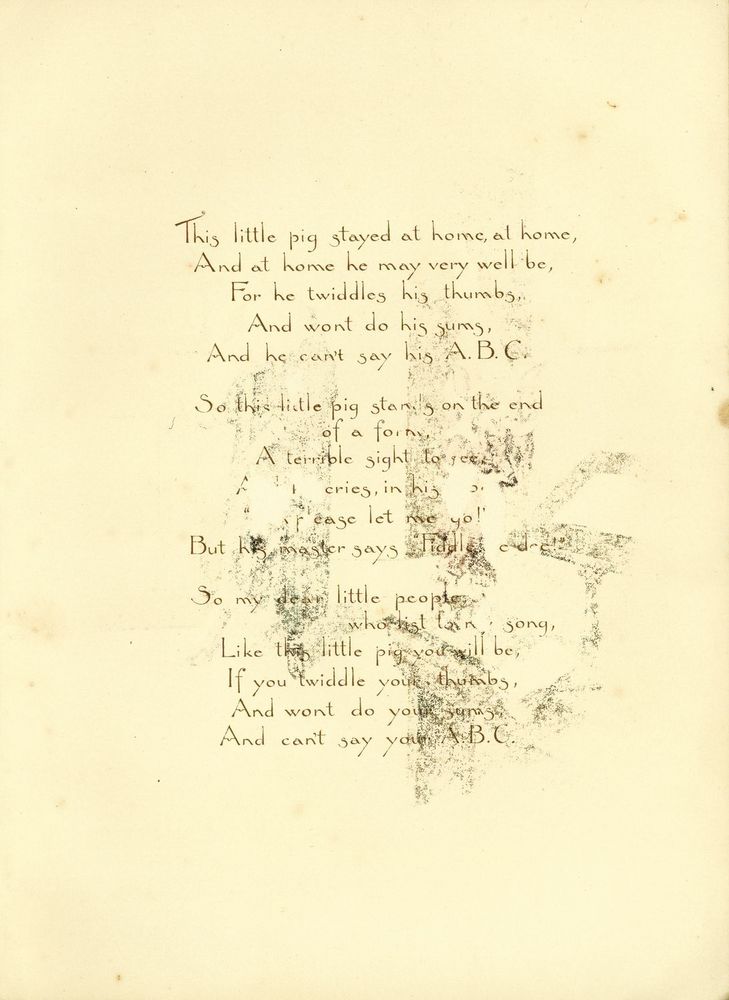 This little pig stayed at home, at home,
And at home he may very well be,
For he twiddles his thumbs,
And wont do his sums,
And he can't say his A.B.C.
So this little pig stands on the end
of a form,
A terrible sight to see;
cries, in his
please let me go!"
But his master says
So my dear little people
who list to my song,
Like this little pig you will be,
If you twiddle your thumbs,
And wont do your sums,
And can't say your A.B.C.